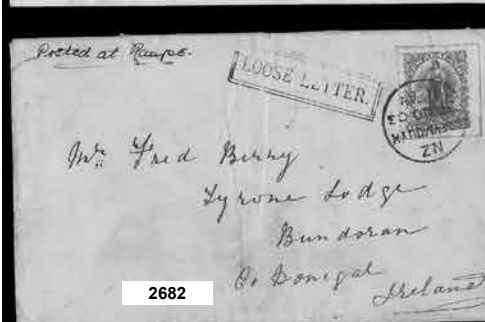 Posted at Raupo.
LOOSE LETTER.
NZ
Mr Fred Birny
Tyrone Lodge
Bundoran
Co Donegal
Ireland
2682